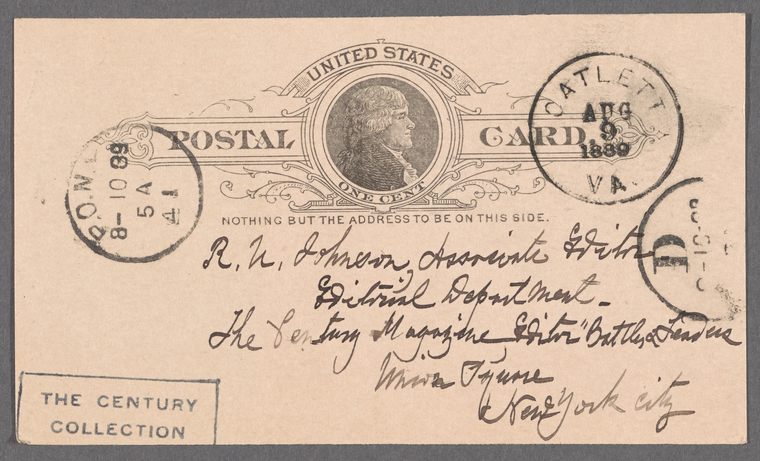 UNITED STATES
POSTAL CARD
ONE CENT
NOTHING BUT THE ADDRESS TO BE ON THIS SIDE.
CATLETT
AUG
9
1889
VA.
P.O.N.Y.
8-10 89
5 A
A1
D
R. U. Johnson, Associate Editor
Editorial Department -
The Century Magazine, Editor "Battles & Leaders
Union Square
New York city
THE CENTURY
COLLECTION